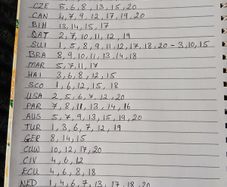 CZE 5,6,8,13,15,20
CAN 4,7,9,12,17,19,20
BIH 13,14,15,17
QAT 2,7,10,11,12,19
SUI 1,5,8,9,11,12,17,18,20 - 3,10,15
BRA 8,9,10,11,13,14,18
MAR 5,7,11,17
HAI 3,6,8,12,15
SCO 1,6,12,15,18
USA 2,5,6,7,12,20
PAR 7,8,11,13,14,16
AUS 5,7,9,13,15,17,20
TUR 1,3,6,7,12,19
GER 8,14,15
CUW 10,12,17,20
CIV 4,6,12
ECU 4,6,8,18
NED 1,4,6,7,13,17,18,20